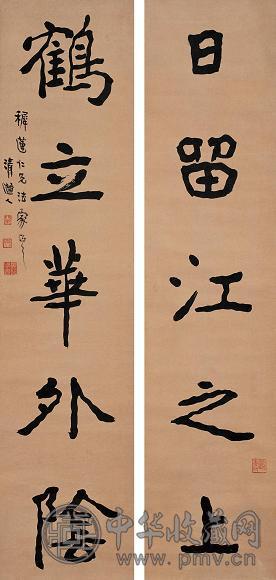 日留江之上
鶴立華外陰
蓮仁兄法家正之
清道人
中华收藏网
www.pmv.cn